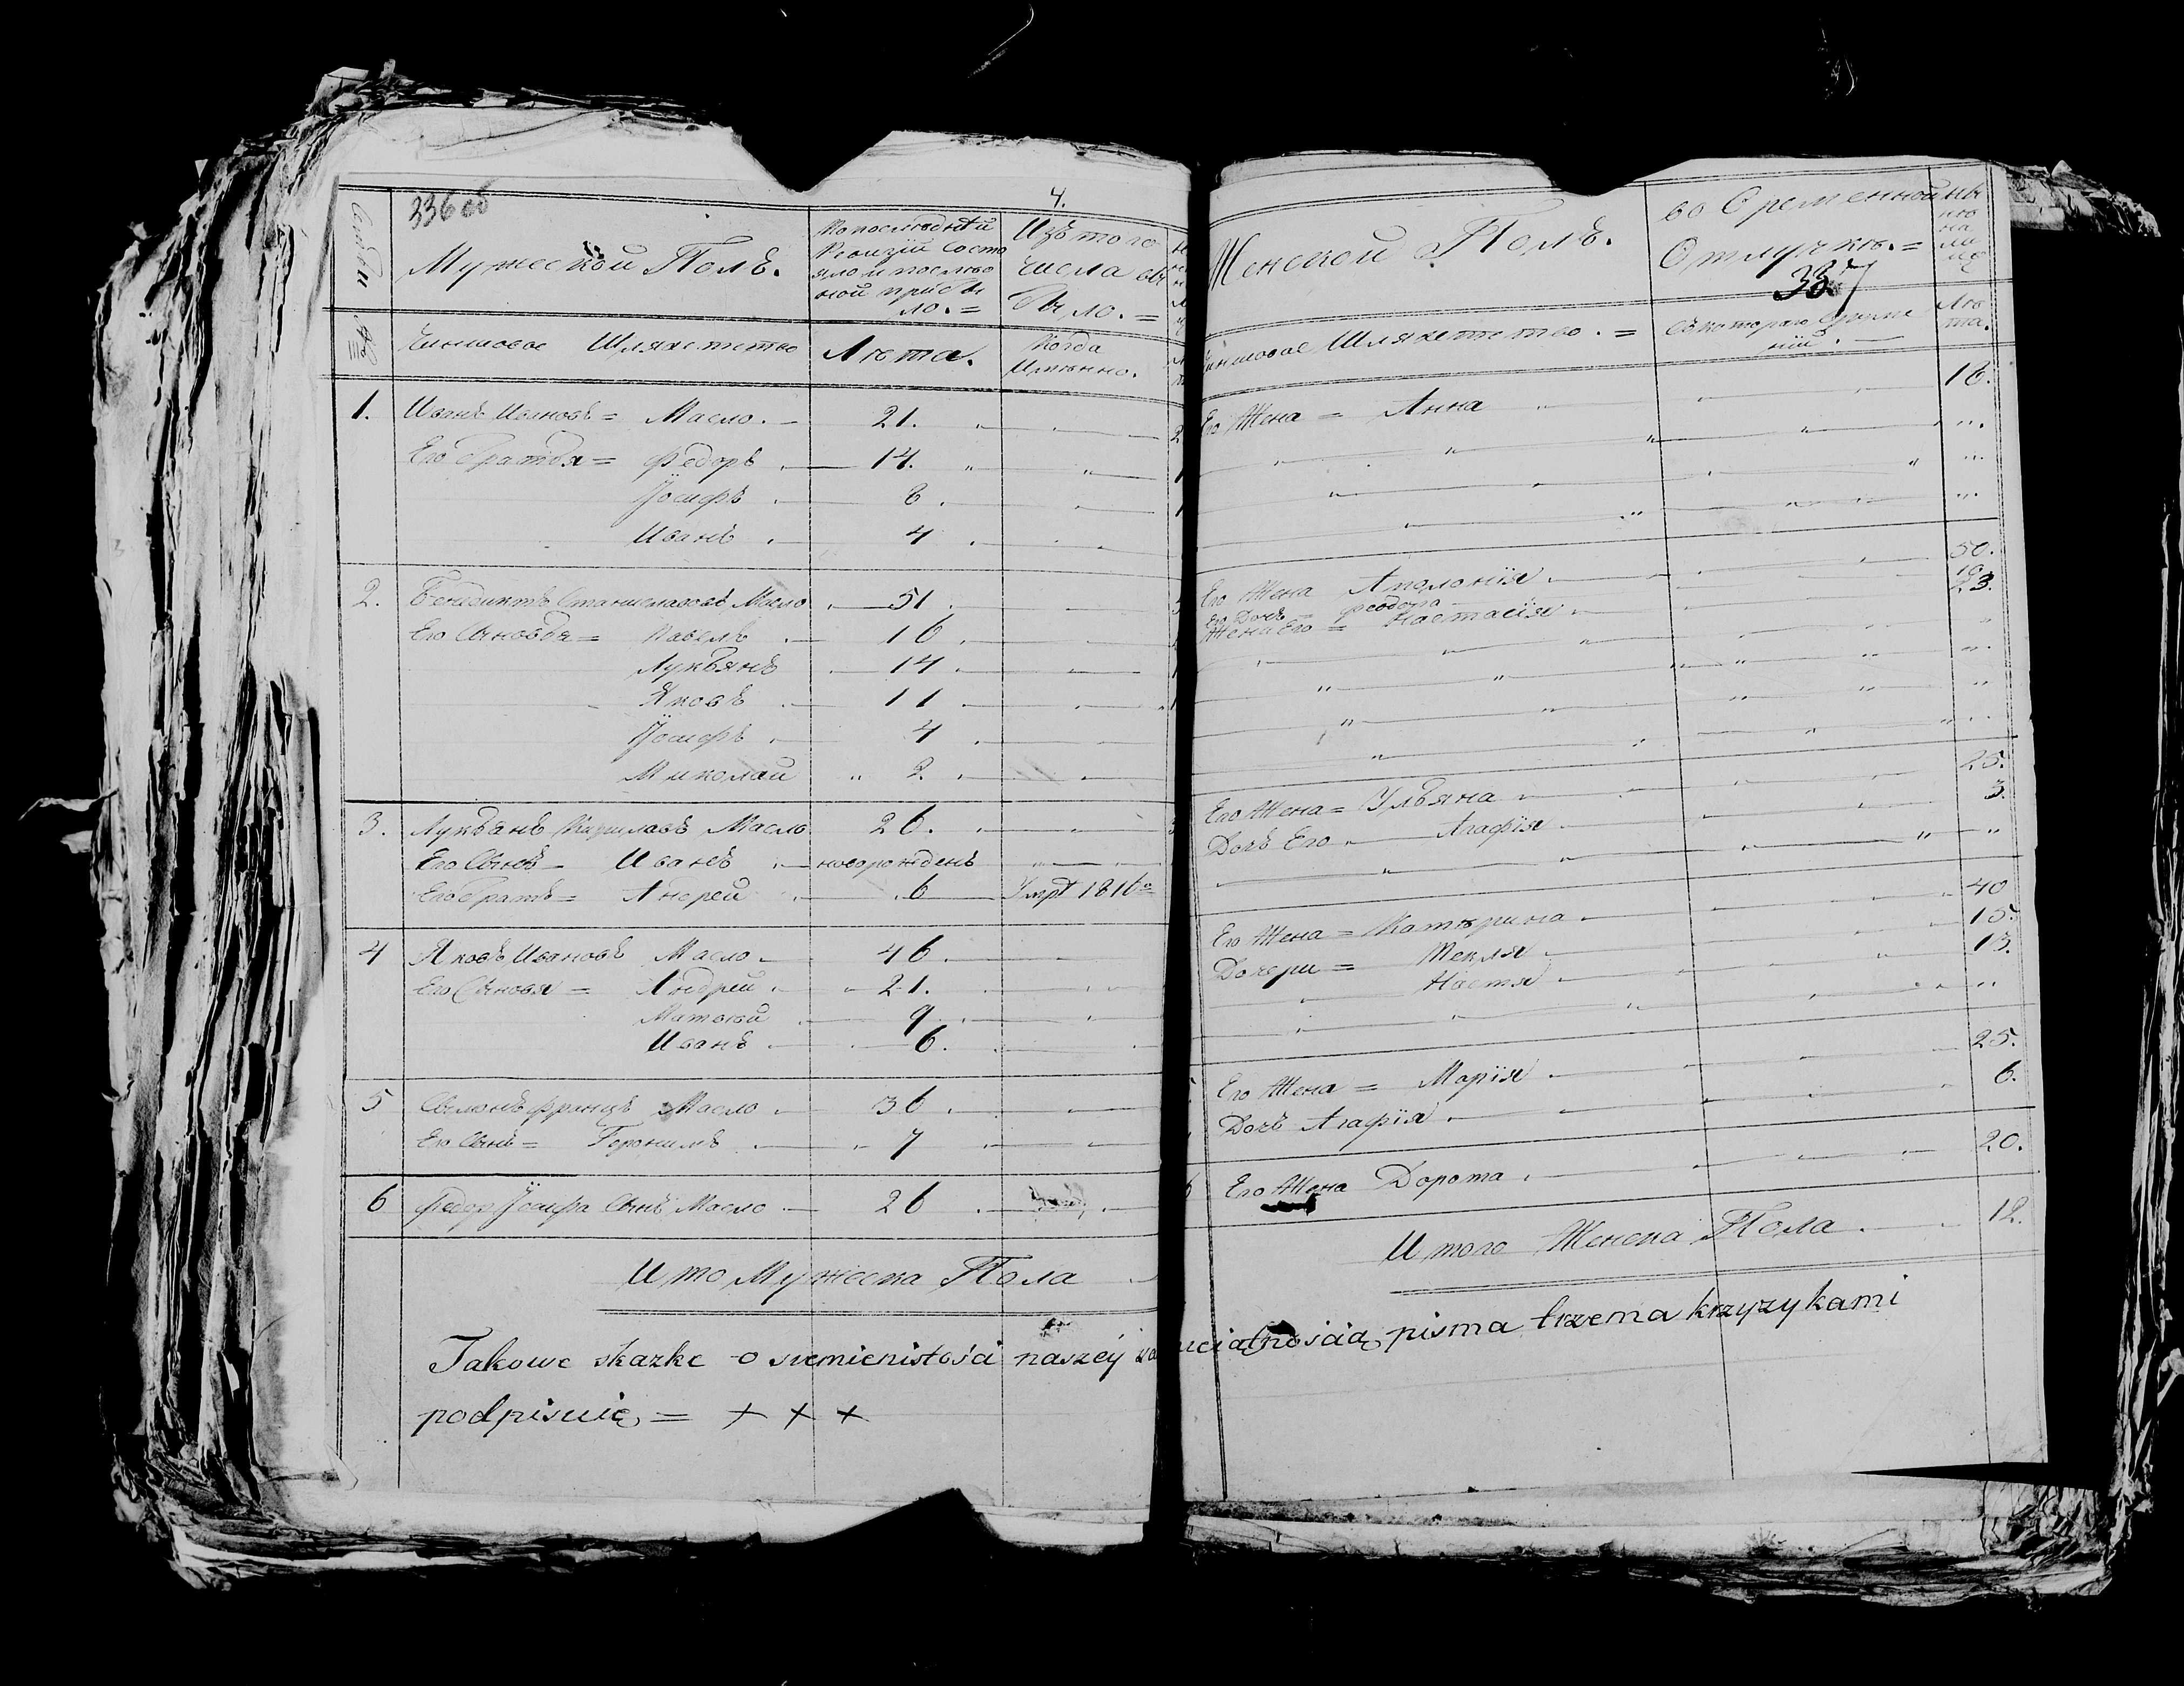 336 об
4.
Мужеской Полъ.
По последней
Ревизии состо
яло и после о
ной прибы
ло. =
Изъ того
числа вы
было. =
№
Чиншовое Шляхетство
Лета.
Когда
Имянно.
1. Иванъ Ивановъ = Масло. 21.
Его братья = Федоръ 14.
Іосифъ 8.
Иванъ 4
2. Бенедиктъ Станиславовъ Масло 51
Его Сыновья = Павелъ 16
Лукьянъ 14
Яковъ 11
Іосифъ 4
Миколай 2.
3. Лукьянъ Масло 26.
Его Сынъ = Иванъ новорожденъ
Его братъ = Андрей 6 Умре 1816го
4 Яковъ Ивановъ Масло 46
Его Сыновя = Андрей 21.
Матвей 9
Иванъ 6.
5 Франца Масло 36
Его Сынъ = Геронимъ 7
6 Федор Іосифа Сынъ Масло 26
Ито Мужеска Пола
Takowe skazke o siemienistości naszey
podpisuię = + + +
Женской Полъ.
во Временной
Отлучке. =
337
Шляхетство. =
Съ котораго Време
ний.
Ле
та.
Его Жена = Анна 16.
Его Жена Аполонія 50.
Его Дочь = Феодора 10
Жена Его = Настасія 23.
Его Жена = Ульяна 25.
Дочь Его Агафія 3.
Его Жена = Катерина 40
Дочери = Текля 15.
Настя 13.
Его Жена = Марія 25.
Дочь Агафія 6.
6 Его Жена Дорота 20.
Итого Женска Пола 12.
pisma trzema krzyzykami